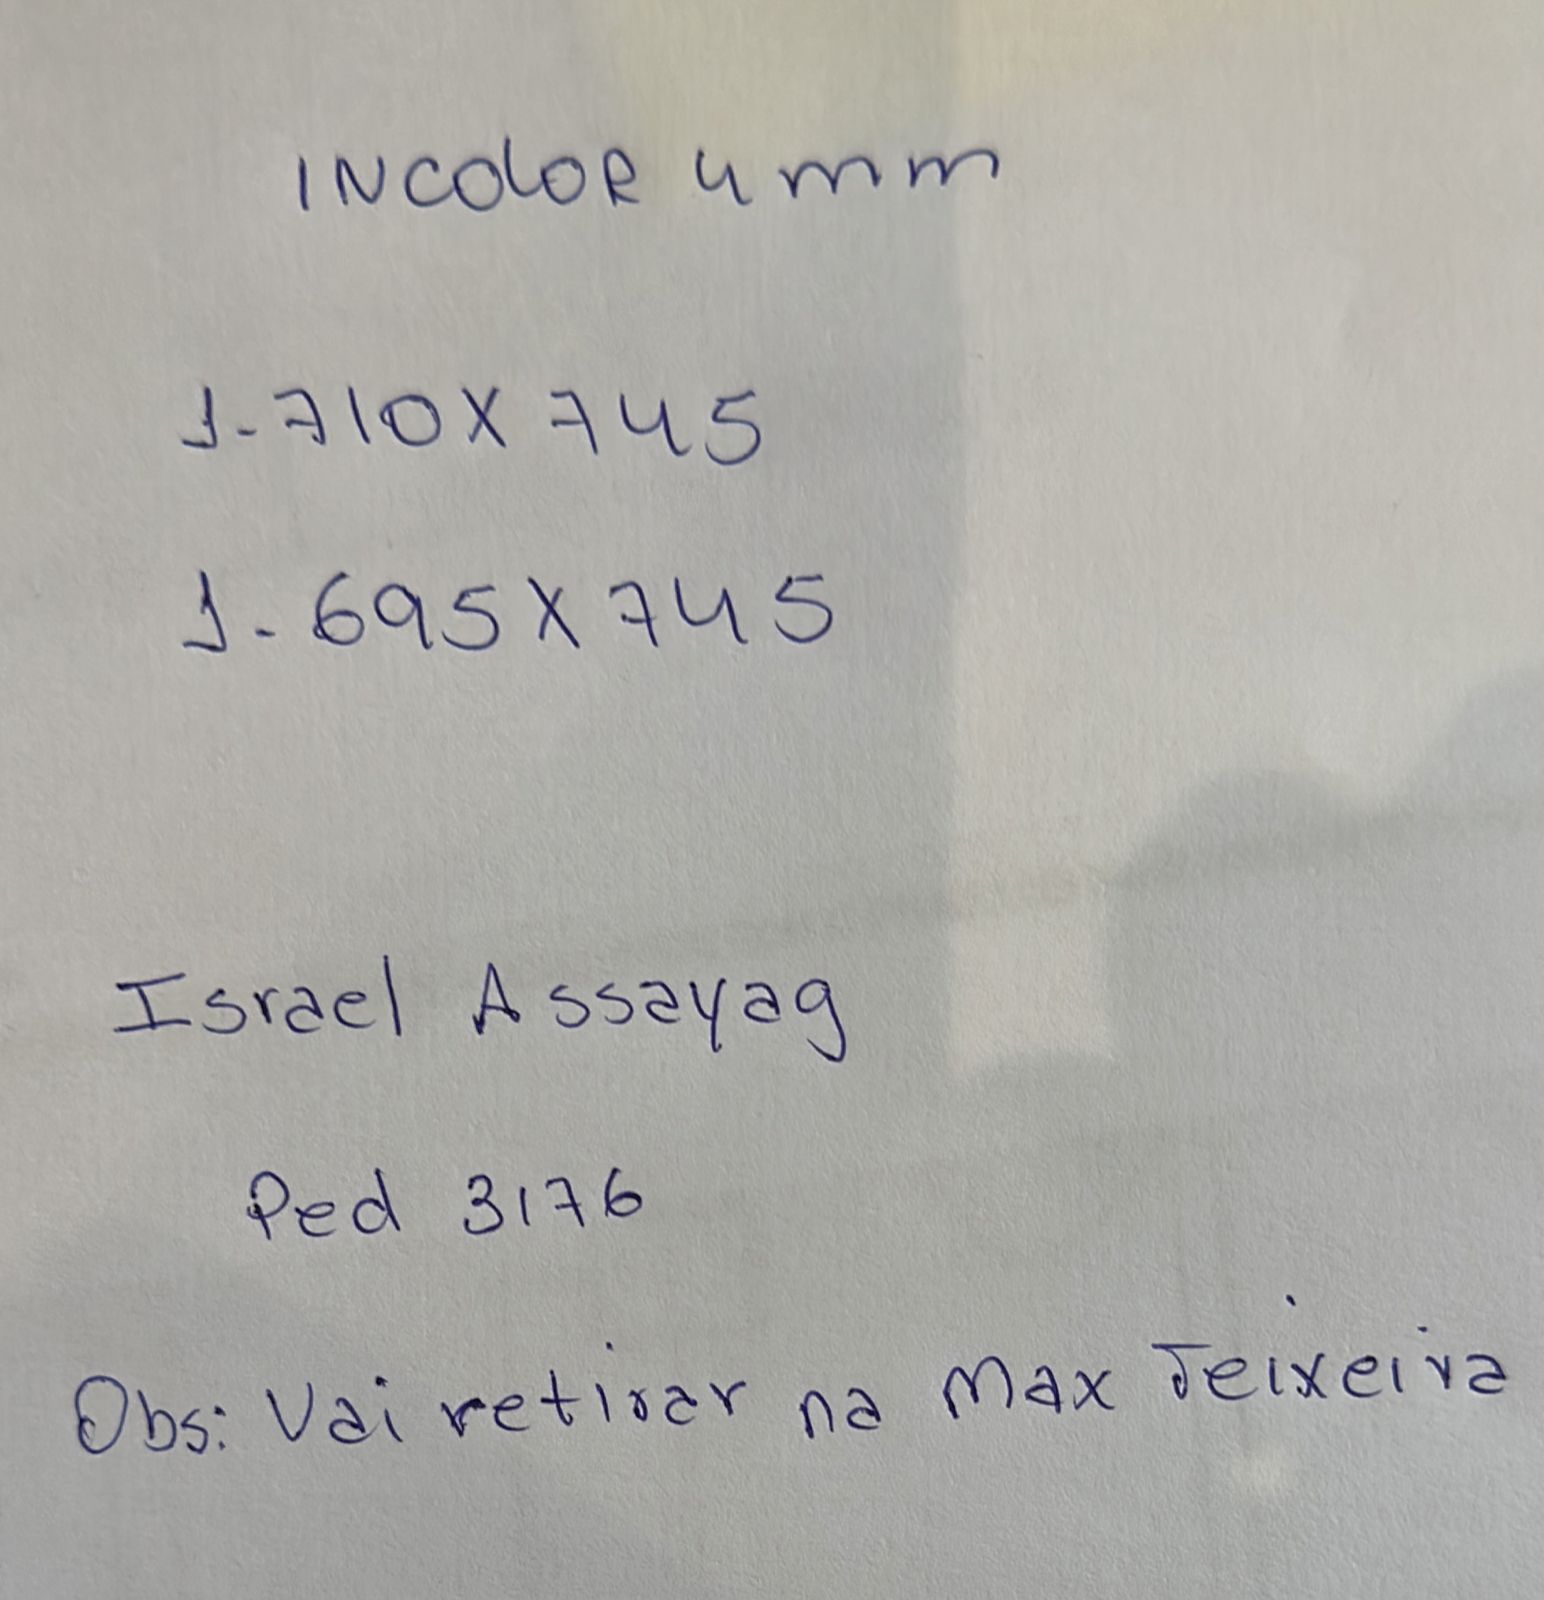 INCOLOR 4mm
1-710X745
1-695X745
Israel Assayag
Ped 3176
Obs: Vai retirar na Max Teixeira